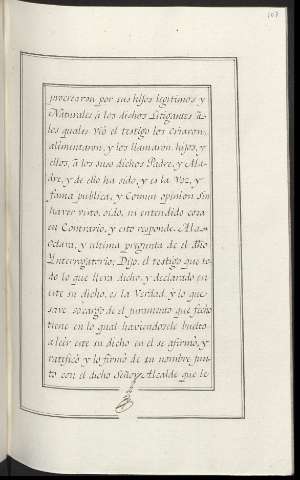 107
procrearon por sus hijos legitimos y
Naturales à los dichos Litigantes à
los quales vió el testigo los criaron,
alimentaron, y los llamaron hijos, y
ellos, à los suso dichos Padre, y Ma-
dre, y de ello ha sido, y es la Voz, y
fama publica, y Comun opinion sin
haver visto, oido, ni entendido cosa
en Contrario, y esto responde. A la o-
ctava, y ultima pregunta de el dho
Ynterrogatorio; Dijo, el testigo que to-
do lo que lleva dicho, y declarado en
este su dicho, es la Verdad, y lo que
save so cargo de el juramento que fecho
tiene en lo qual haviendosele buelto
à leér este su dicho en el se afirmó, y
ratificó y lo firmó de su nombre jun-
to con el dicho Señor Alcalde que le